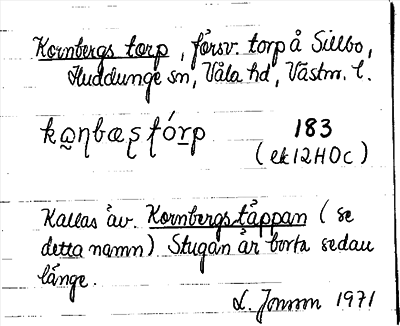 Kornbergs torp, försv. torp å Sillbo,
Huddunge sn, Våla hd, Västm. l.
ko̰ɳbæʂ ʈórp 183
(ek 12H0c)
Kallas äv. Kornbergstäppan (se
detta namn) Stugan är borta sedan
länge.
L. Jonson 1971